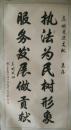 执法为民树形象
服务发展做贡献